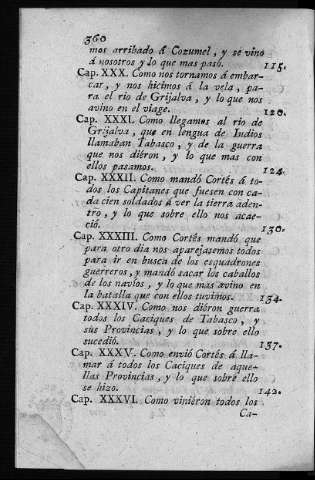 360
mos arribado á Cozumel, y se vino
á nosotros y lo que mas pasó. 115.
Cap. XXX. Como nos tornamos á embar-
car, y nos hicimos á la vela, pa-
ra el rio de Grijalva, y lo que nos
avino en el viage. 120.
Cap. XXXI. Como llegamos al rio de
Grijalva, que en lengua de Indios
llamaban Tabasco, y de la guerra
que nos diéron, y lo que mas con
ellos pasamos. 124.
Cap. XXXII. Como mandó Cortés á to-
dos los Capitanes que fuesen con ca-
da cien soldados á ver la tierra aden-
tro, y lo que sobre ello nos acae-
ció. 130.
Cap. XXXIII. Como Cortés mandó que
para otro dia nos aparejasemos todos
para ir en busca de los esquadrones
guerreros, y mandó sacar los caballos
de los navíos, y lo que mas avino en
la batalla que con ellos tuvimos. 134.
Cap. XXXIV. Como nos diéron guerra
todos los Caciques de Tabasco, y
sus Provincias, y lo que sobre ello
sucedió. 137.
Cap. XXXV. Como envió Cortés á lla-
mar á todos los Caciques de aque-
llas Provincias, y lo que sobre ello
se hizo. 142.
Cap. XXXVI. Como viniéron todos los
Ca-